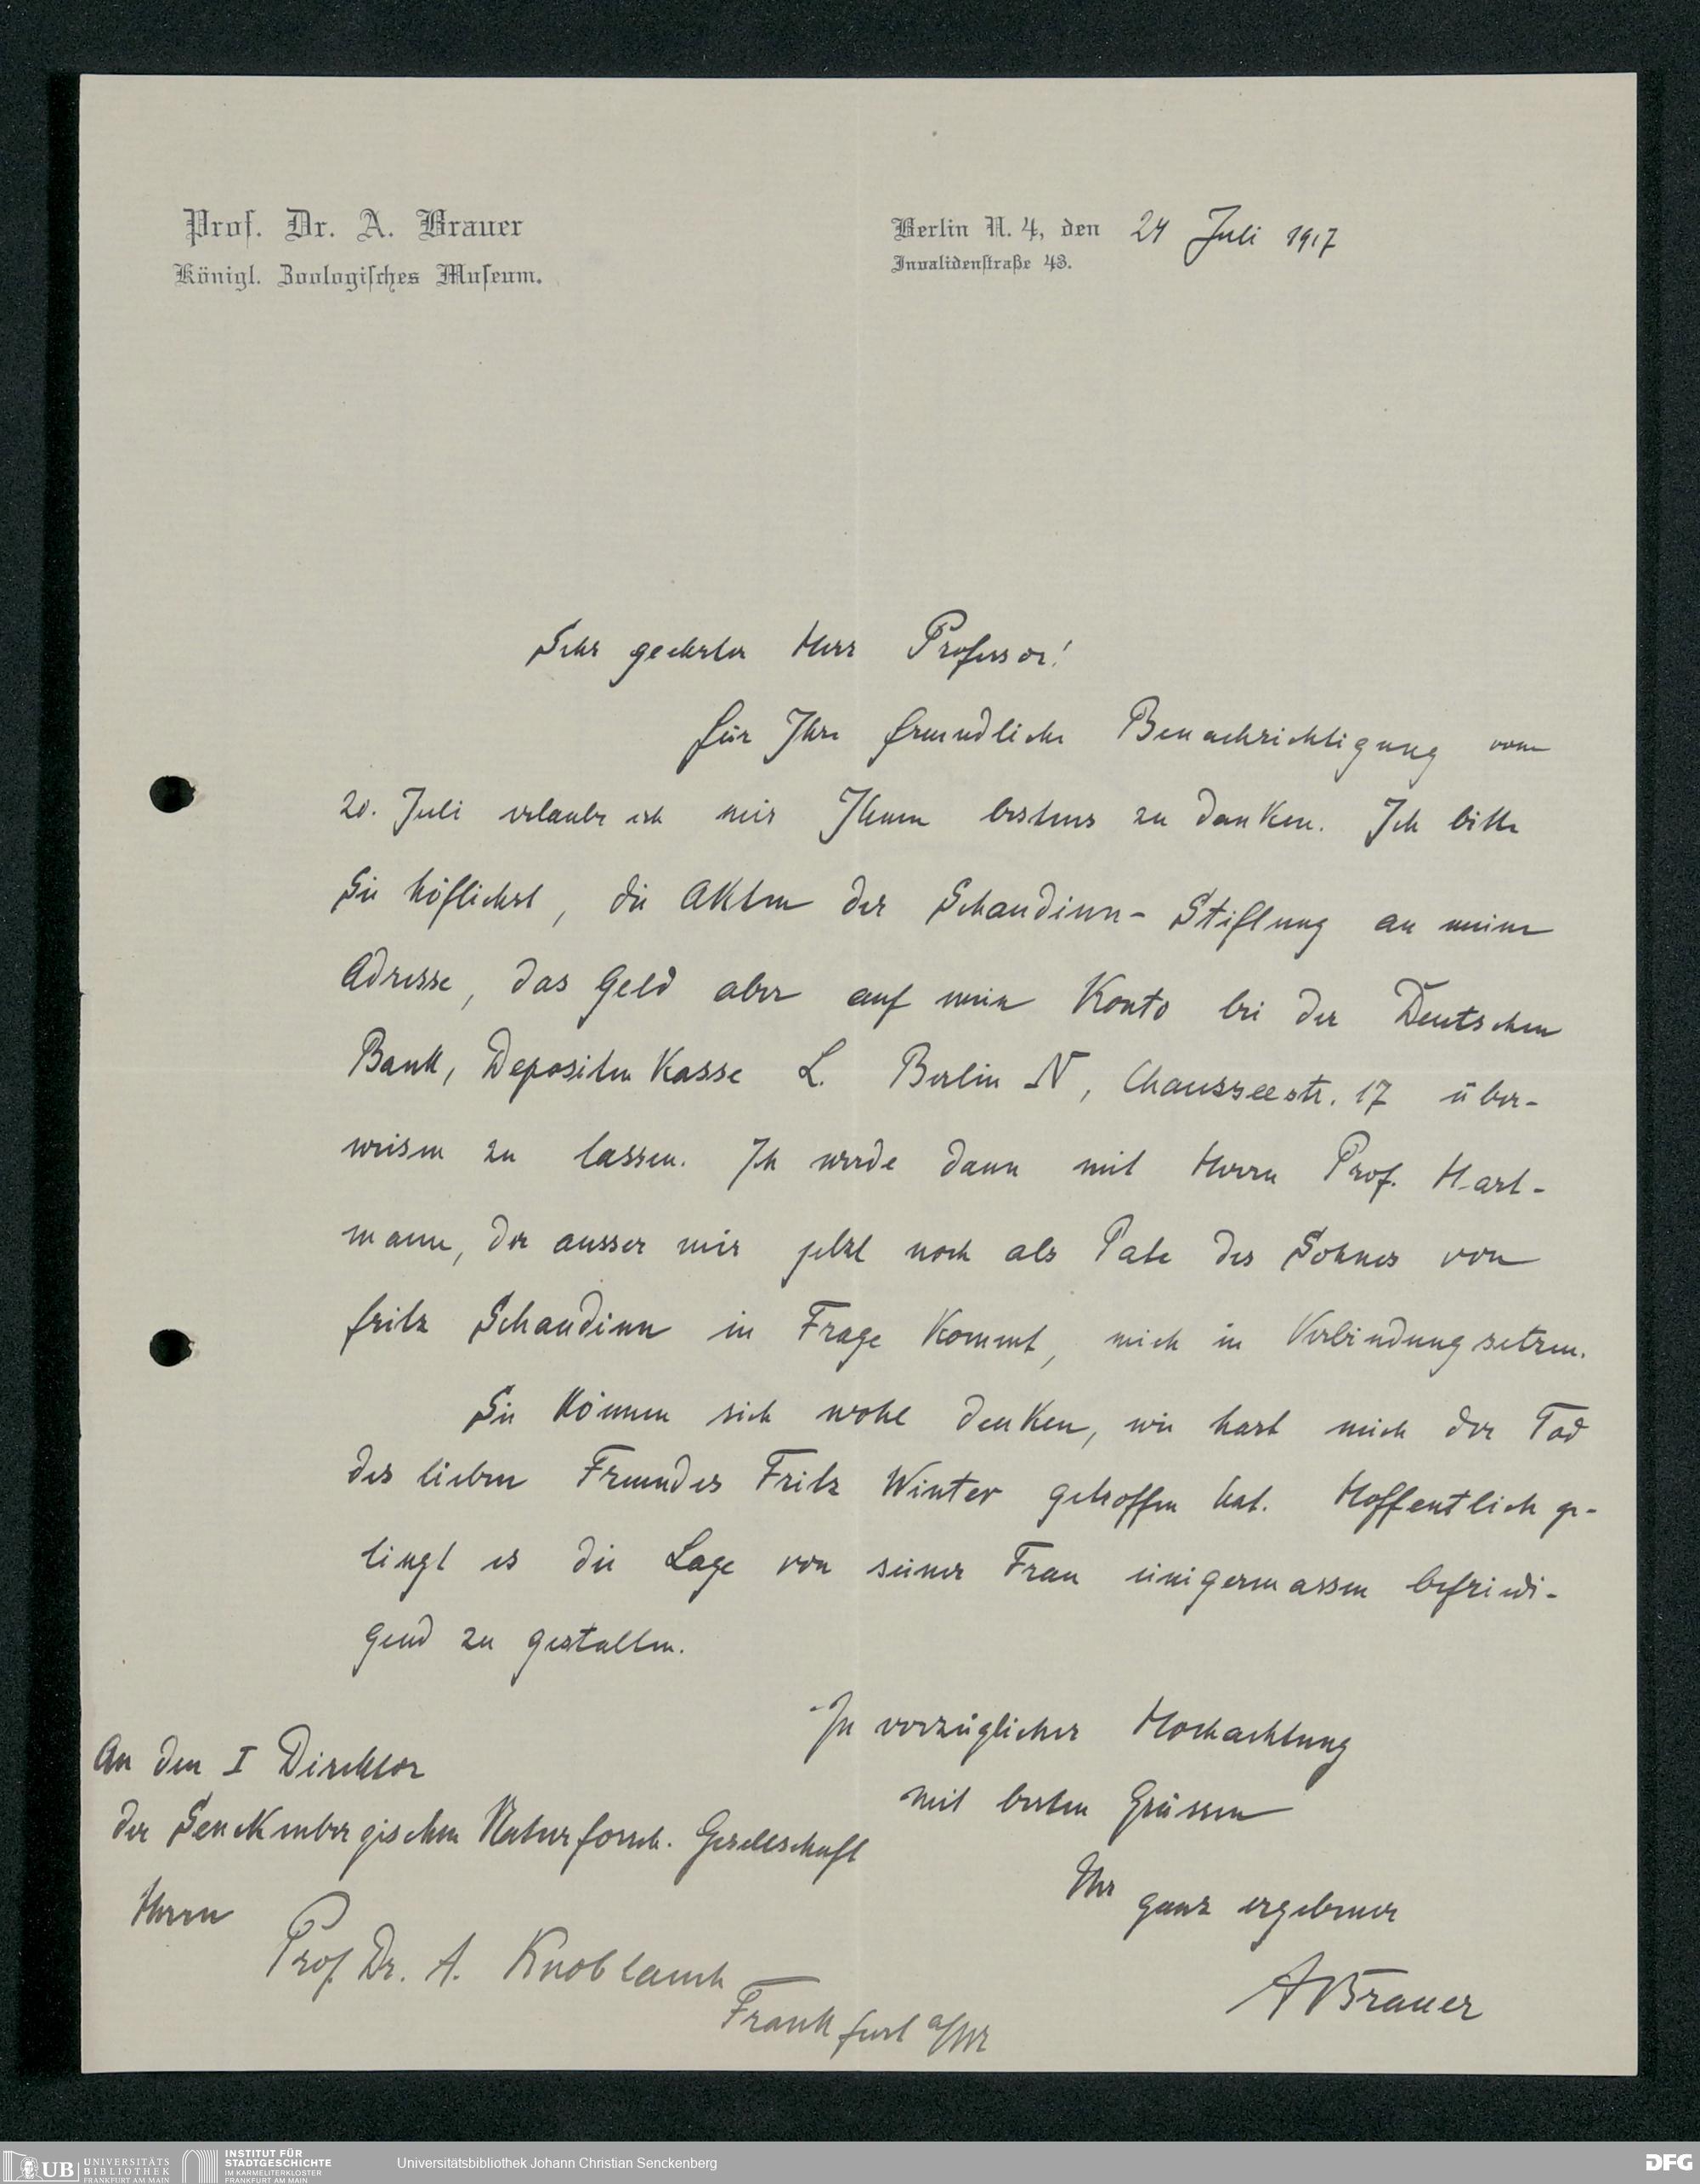 Prof. Dr. A. Brauer
Königl. Zoologisches Museum.
Berlin N. 4, den 24 Juli 1917
Invalidenstraße 43.
Sehr geehrter Herr Professor!
Für Ihre freundliche Benachrichtigung vom
20. Juli erlaube ich mir Ihnen bestens zu danken. Ich bitte
Sie höflichst, die Akten der Schaudinn-Stiftung an meine
Adresse, das Geld aber auf mein Konto bei der Deutschen
Bank, Depositenkasse L. Berlin N, Chausseestr. 17 über-
weisen zu lassen. Ich werde dann mit Herrn Prof. Hart-
mann, der ausser mir jetzt noch als Pate des Sohnes von
Fritz Schaudinn in Frage kommt, mich in Verbindung setzen.
Sie können sich wohl denken, wie hart mich der Tod
des lieben Freundes Fritz Winter getroffen hat. Hoffentlich ge-
lingt es die Lage von seiner Frau einigermassen befriedi-
gend zu gestalten.
In vorzüglicher Hochachtung
mit besten Grüssen
Ihr ganz ergebener
ABrauer
An den I Direktor
der Senckenbergischen Naturforsch. Gesellschaft
Herrn
Prof. Dr. A. Knoblauch
Frankfurt a/M
UB UNIVERSITÄTS
BIBLIOTHEK
FRANKFURT AM MAIN
INSTITUT FÜR
STADTGESCHICHTE
IM KARMELITERKLOSTER
FRANKFURT AM MAIN
Universitätsbibliothek Johann Christian Senckenberg
DFG